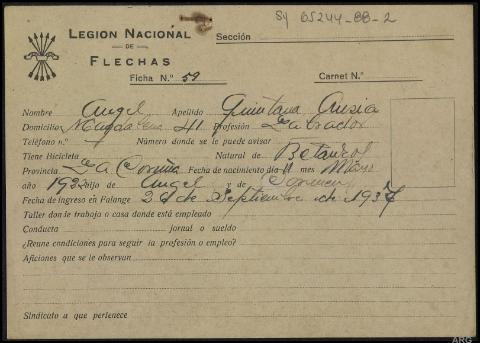 Sg 65244-88-2
LEGION NACIONAL
DE
FLECHAS
Sección
Ficha N.º 59
Carnet N.º
Nombre Angel Apellido Quintana
Domicilio Magdalena 41 Profesión Labrador
Teléfono n.º Número donde se le puede avisar
Tiene Bicicleta Natural de Betanzos
Provincia La Coruña Fecha de nacimiento día 11 mes Mayo
año 192 hijo de Angel y de
Fecha de ingreso en Falange 2 de Septiembre de 1937
Taller donde trabaja o casa donde está empleado
Conducta jornal o sueldo
¿Reune condiciones para seguir la profesión o empleo?
Aficiones que se le observan
Sindicato a que pertenece
ARG